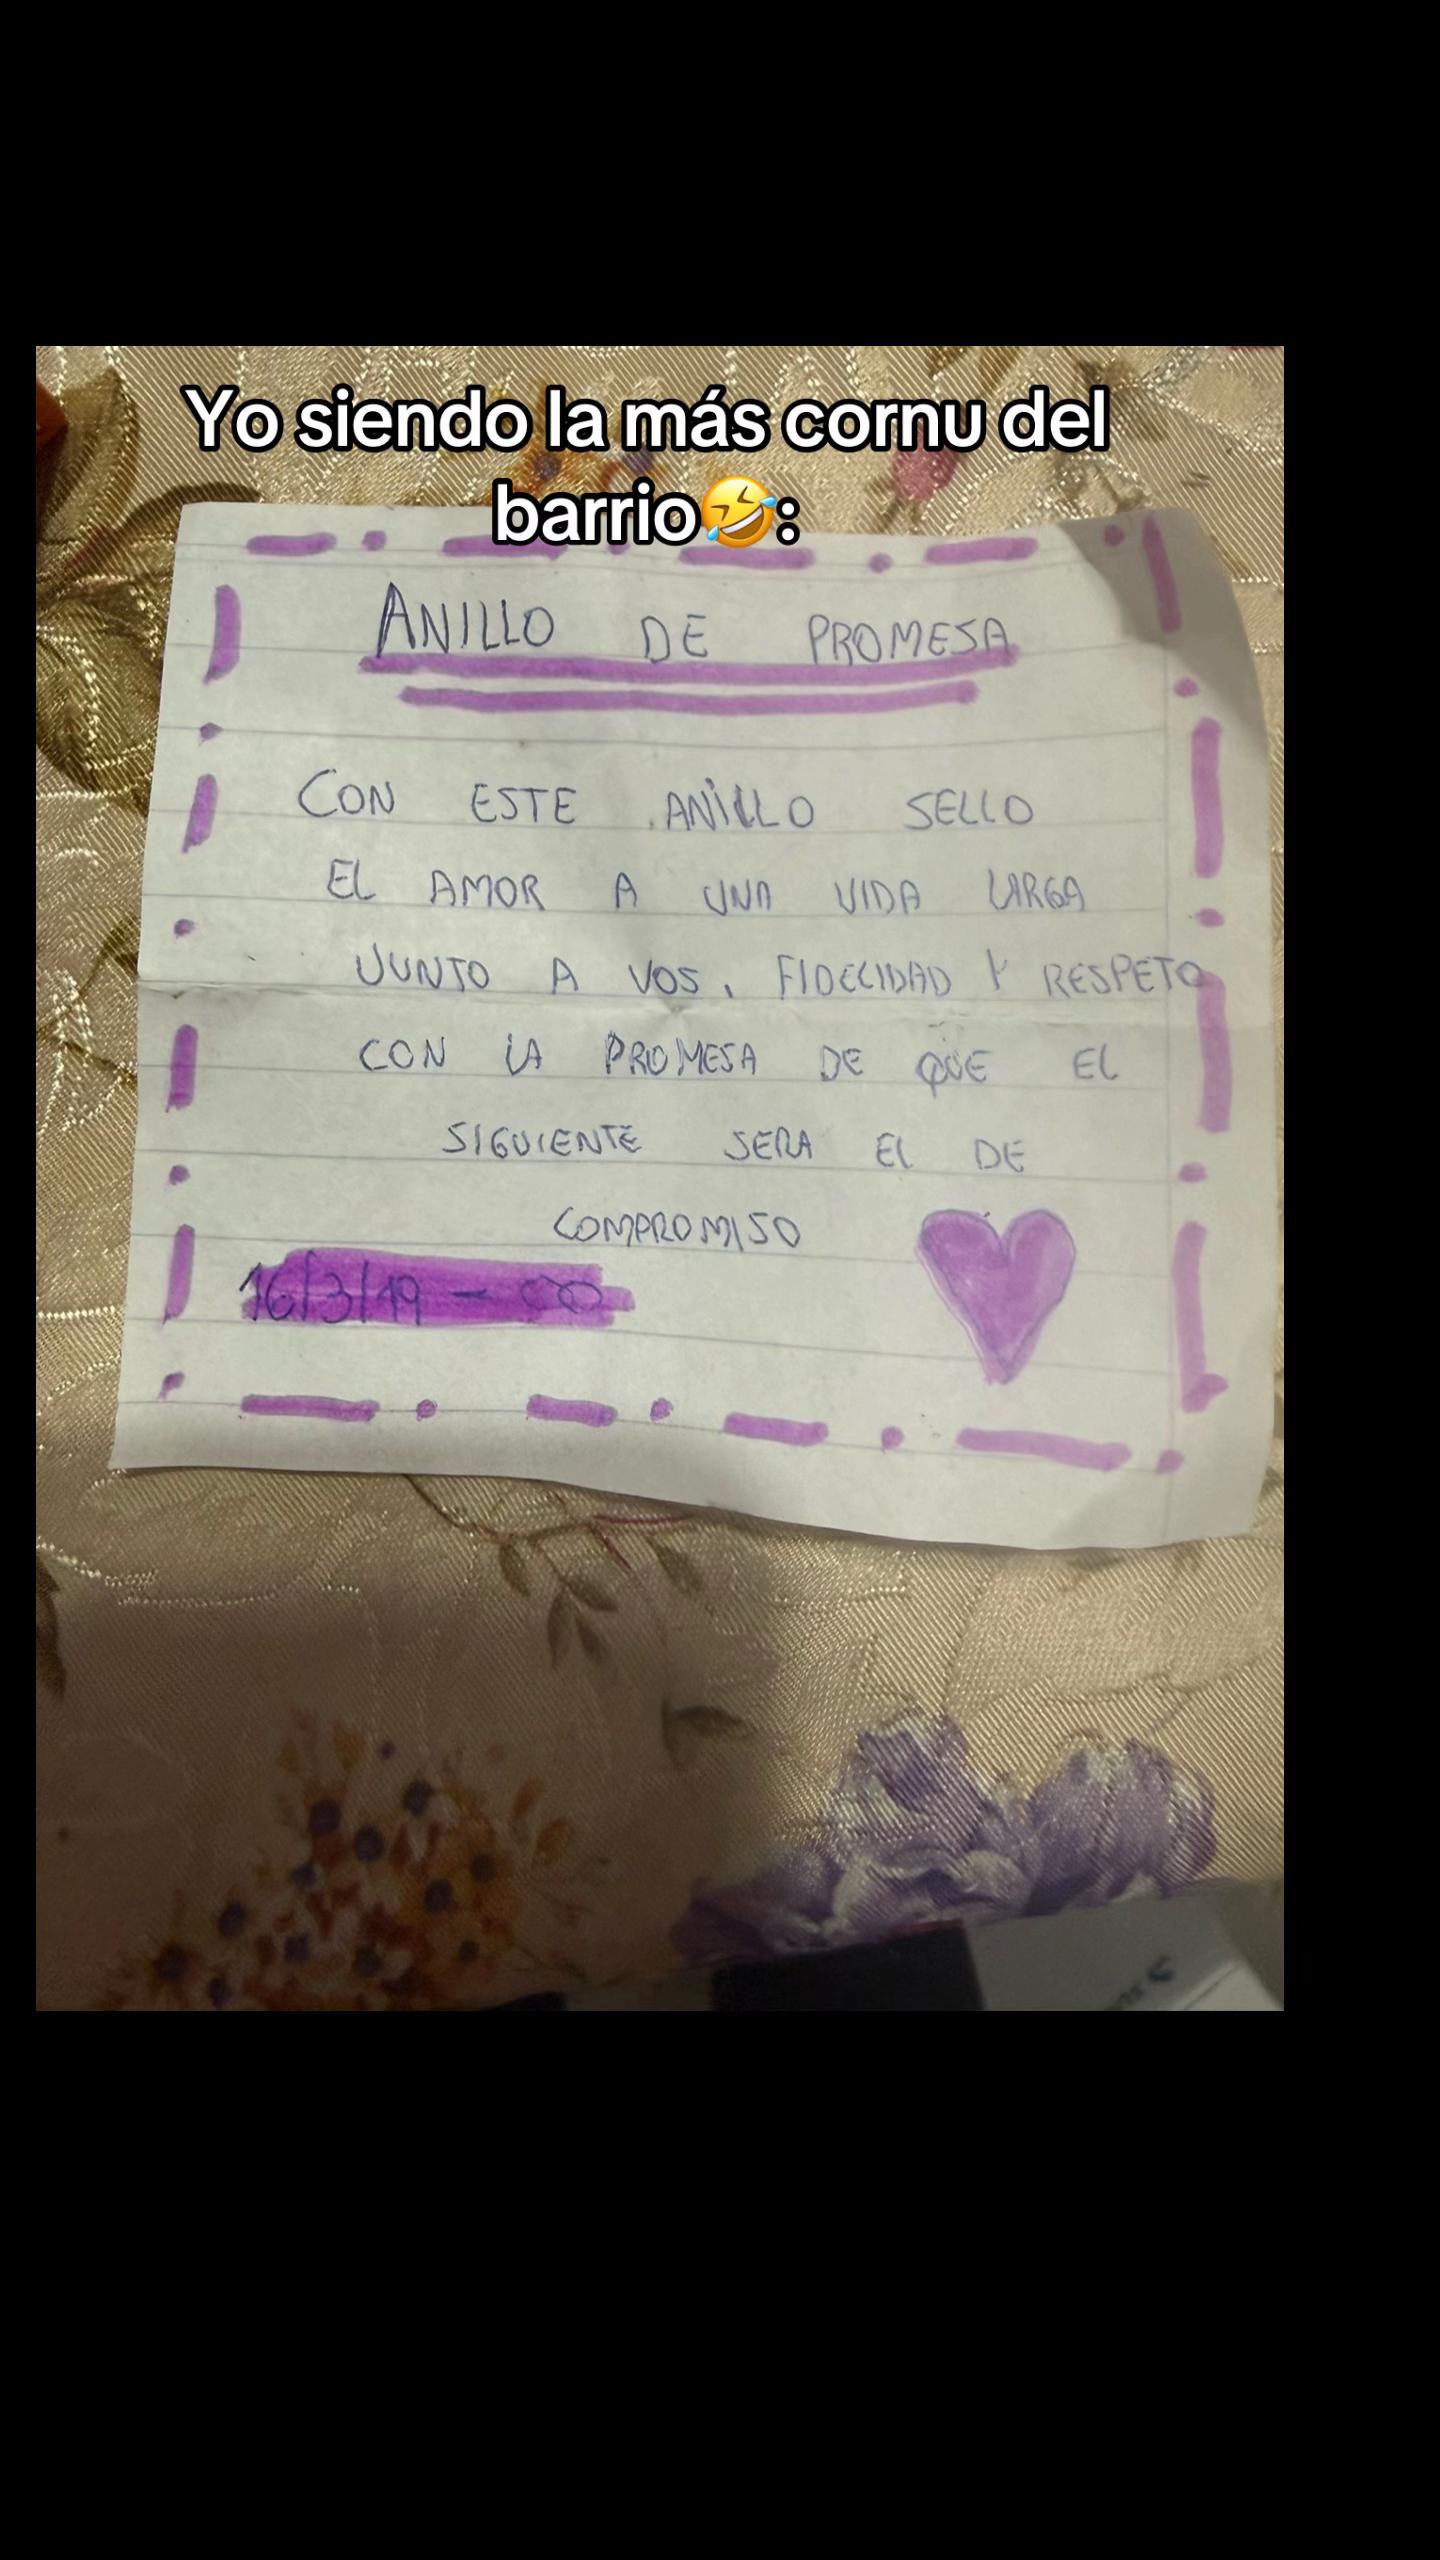 Yo siendo la más cornu del
barrio🤣:
ANILLO DE PROMESA
CON ESTE ANILLO SELLO
EL AMOR A UNA VIDA LARGA
JUNTO A VOS, FIDELIDAD Y RESPETO
CON LA PROMESA DE QUE EL
SIGUIENTE SERA EL DE
COMPROMISO
16/3/19 - ∞